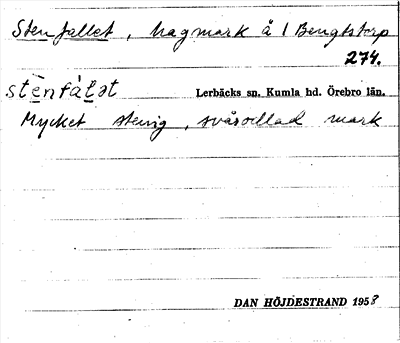 Stenfallet, hagmark å 1 Bengtstorp
274.
stènfál̲ət Lerbäcks sn. Kumla hd. Örebro län.
Mycket stenig, svårodlad mark
DAN HÖJDESTRAND 1958